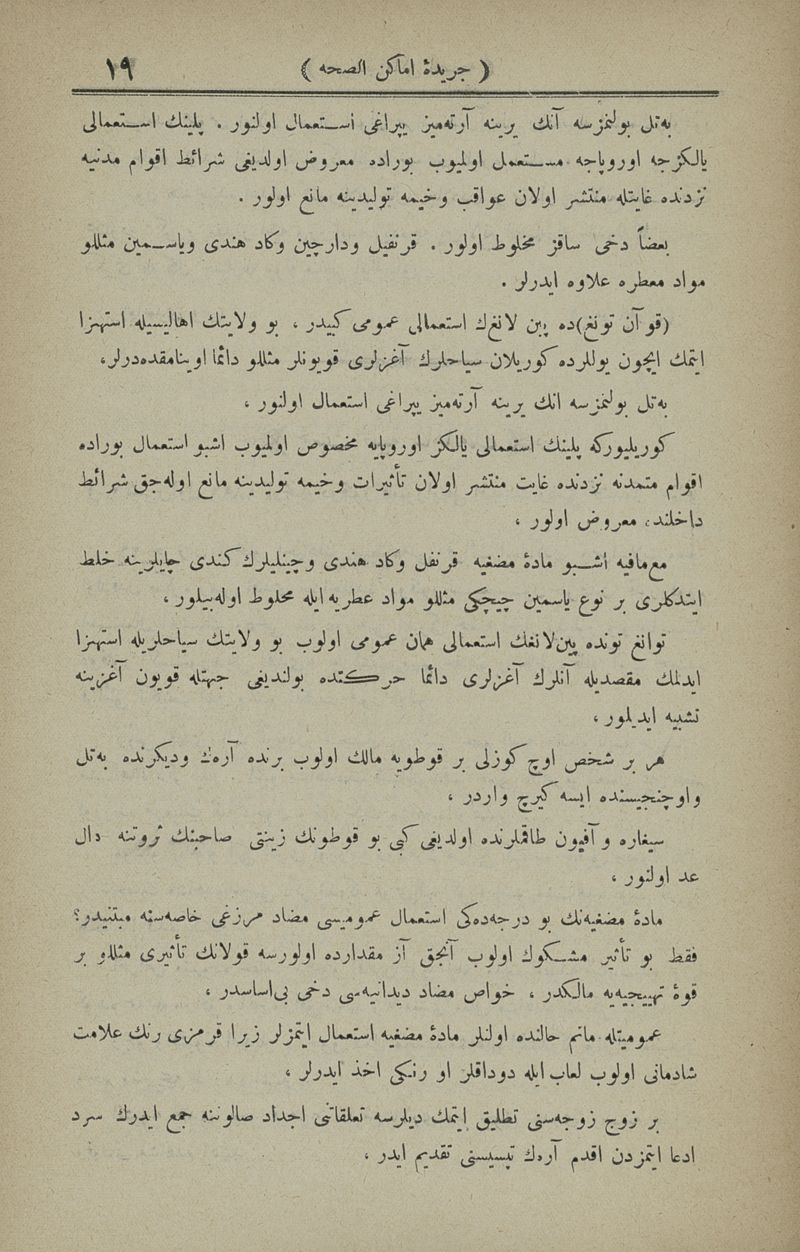 ( جریدهٔ اماکن الصحه ) ١٩
به‌تل بولنمزسه آنك یرینه آرته‌میز یپراغی استعمال اولنور . پلینك استعمالی
یالکزجه اوروپاجه مستعمل اولمیوب بوراده معروض اولدیغی شرائط اقوام مدنیه
نزدنده غایتله منتشر اولان عواقب وخیمه تولیدینه مانع اولور .
بعضاً دخی ساقز مخلوط اولور . قرنفیل ودارچین وکاد هندی ویاسمین مثللو
مواد معطره علاوه ایدرلر .
(قوآن تونغ)ده پین لانغك استعمالی عمومی کبیدر ، بو ولایتك اهالیسیله استهزا
ایتمك ایچون یوللرده کوریلان سیاحلرك آغزلری قویونلر مثللو دائما اوینامقده‌درلر،
به‌تل بولنمزسه انك یرینه آرته‌میز یپراغی استعمال اولنور ،
کوریلیورکه پلینك استعمالی یالکز اوروپایه مخصوص اولمیوب اشبو استعمال بوراده
اقوام متمدنه نزدنده غایت منتشر اولان تأثیرات وخیمه تولیدینه مانع اوله‌جق شرائط
داخلنده معروض اولور ،
مع‌مافیه اشبو مادهٔ مضغیه قرنفل وکاد هندی وچینلیلرك کندی چایلرینه خلط
ایتدکلری بر نوع یاسمین چیچکی مثللو مواد عطریه ایله مخلوط اوله‌بیلور ،
توانغ تونده پین‌لانغك استعمالی همان عمومی اولوب بو ولایتك سیاحلریله استهزا
ایدلمك مقصدیله آنلرك آغزلری دائما حرکتده بولندیغی جهتله قویون آغزینه
تشبیه ایدیلور ،
هر بر شخص اوچ کوزلی بر قوطویه مالك اولوب برنده آره‌ك ودیکرنده به‌تل
واوچنجیسنده ایسه کیرچ واردر ،
سیغاره وآفیون طاقملرنده اولدیغی کبی بو قوطونك زینتی صاحبنك ثروتنه دال
عد اولنور ،
مادهٔ مضغیه‌نك بو درجه‌ده‌کی استعمال عمومیسی مضاد مرزغی خاصه‌سنه مبتنیدر؟
فقط بو تأثیر مشکوك اولوب آنجق آز مقدارده اولورسه قولانك تأثیری مثللو بر
قوهٔ تهییجیه‌یه مالکدر ، خواص مضاد دیدانیه‌سی دخی بی‌اساسدر ،
عمومیتله ماتم حالنده اولنلر مادهٔ مضغیه استعمال ایتمزلر زیرا قرمزی رنك علامت
شادمانی اولوب لعاب ایله دوداقلر او رنکی اخذ ایدرلر ،
بر زوج زوجه‌سنی تطلیق ایتمك دیلرسه تعلقاتی اجداد صالوننه جمع ایدرك سرد
ادعا ایتمزدن اقدم آره‌ك تپسیسنی تقدیم ایدر ،